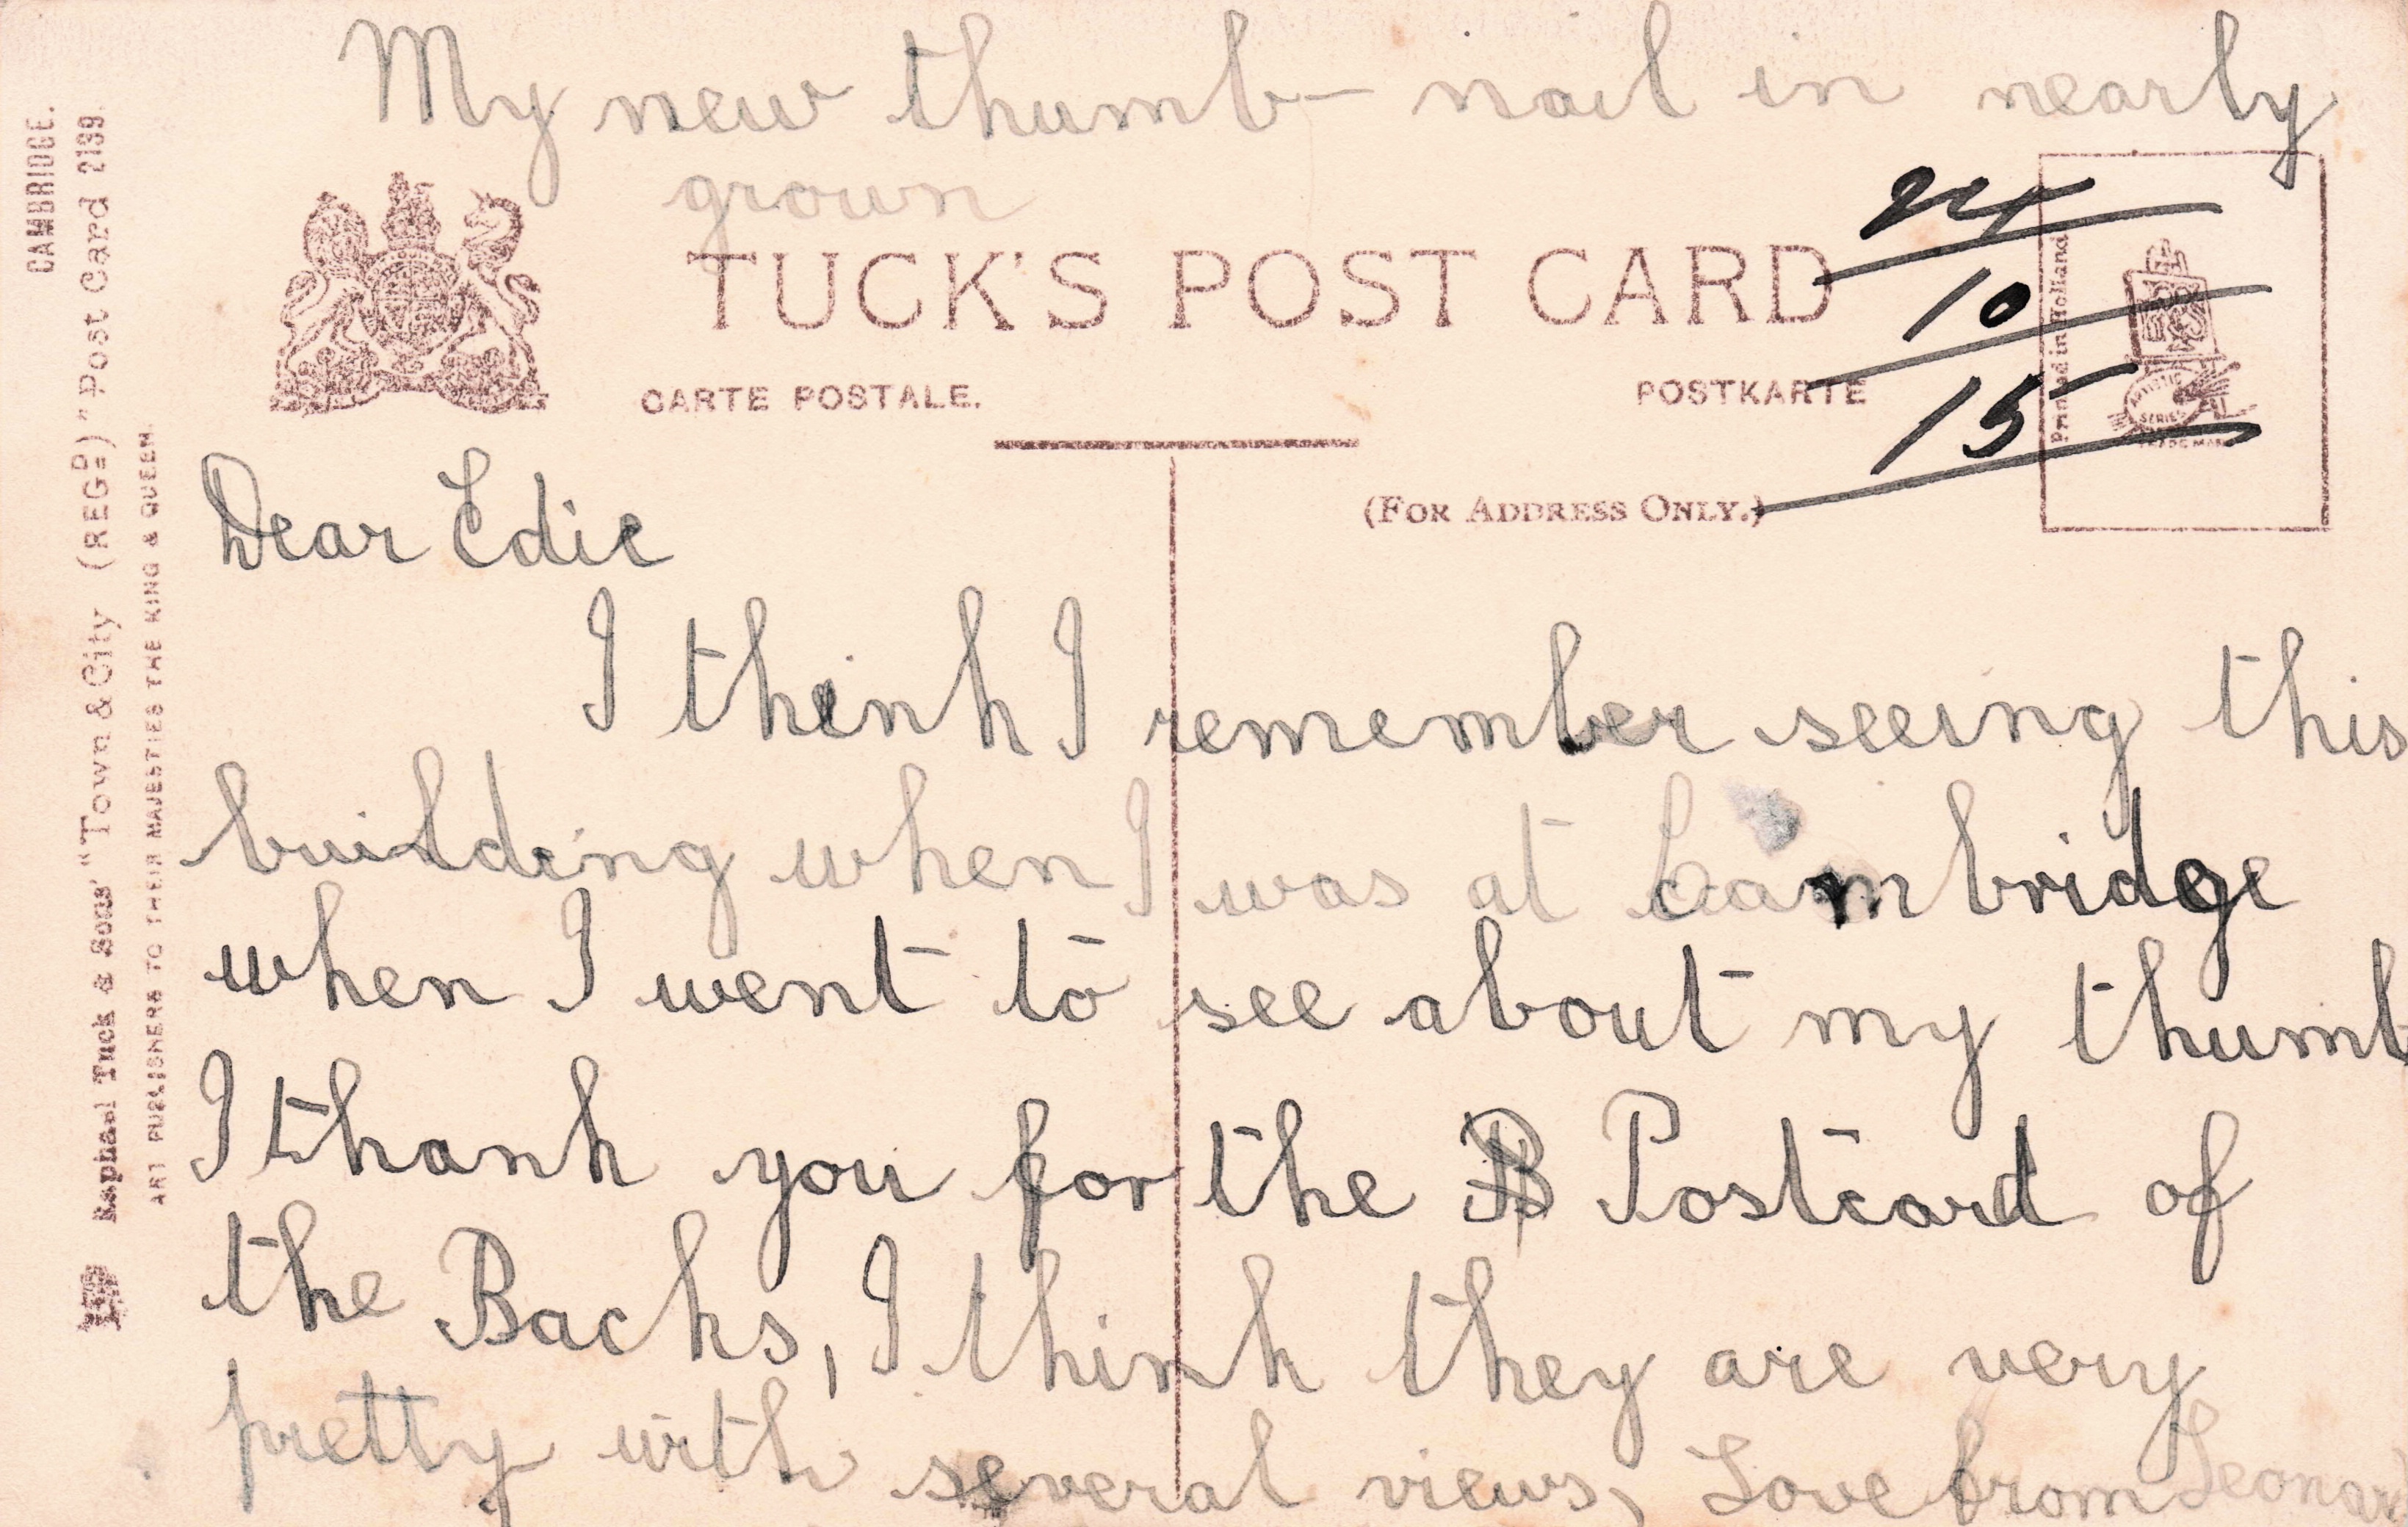 My new thumb- nail in nearly
grown
TUCK'S POST CARD
CARTE POSTALE.
POSTKARTE
(FOR ADDRESS ONLY.)
10
15
Printed in Holland
ARTISTIC
SERIES
TRADE MARK
CAMBRIDGE.
Raphael Tuck & Sons' "Town & City (REGD) "Post Card 2199.
ART PUBLISHERS TO THEIR MAJESTIES THE KING & QUEEN.
Dear Edie
I think I remember seeing this
building when I was at Cambridge
when I went to see about my thumb
I thank you for the B Postcard of
the Backs, I think they are very
pretty with several views, Love from Leonard